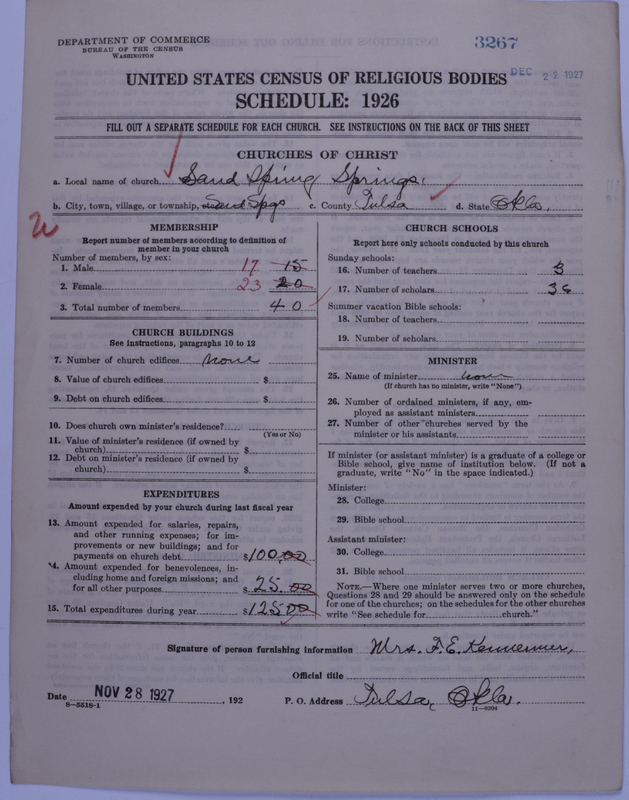 DEPARTMENT OF COMMERCE
BUREAU OF THE CENSUS
WASHINGTON
3267
DEC 22 1927
UNITED STATES CENSUS OF RELIGIOUS BODIES
SCHEDULE: 1926
FILL OUT A SEPARATE SCHEDULE FOR EACH CHURCH. SEE INSTRUCTIONS ON THE BACK OF THIS SHEET
CHURCHES OF CHRIST
a. Local name of church Sand Spring Springs.
b. City, town, village, or township, Sand Spgs c. County Tulsa d. State Okla.
MEMBERSHIP
Report number of members according to definition of
member in your church
Number of members, by sex:
1. Male 17 15
2. Female 23 20
3. Total number of members 40
CHURCH BUILDINGS
See instructions, paragraphs 10 to 12
7. Number of church edifices none
8. Value of church edifices $
9. Debt on church edifices $
10. Does church own minister's residence?
(Yes or No)
11. Value of minister's residence (if owned by
church) $
12. Debt on minister's residence (if owned by
church) $
EXPENDITURES
Amount expended by your church during last fiscal year
13. Amount expended for salaries, repairs,
and other running expenses; for im-
provements or new buildings; and for
payments on church debt $100.00
14. Amount expended for benevolences, in-
cluding home and foreign missions; and
for all other purposes $25.00
15. Total expenditures during year $125.00
CHURCH SCHOOLS
Report here only schools conducted by this church
Sunday schools:
16. Number of teachers 3
17. Number of scholars 36
Summer vacation Bible schools:
18. Number of teachers
19. Number of scholars
MINISTER
25. Name of minister none
(If church has no minister, write "None")
26. Number of ordained ministers, if any, em-
ployed as assistant ministers
27. Number of other churches served by the
minister or his assistants
If minister (or assistant minister) is a graduate of a college or
Bible school, give name of institution below. (If not a
graduate, write "No" in the space indicated.)
Minister:
28. College
29. Bible school
Assistant minister:
30. College
31. Bible school
NOTE.—Where one minister serves two or more churches,
Questions 28 and 29 should be answered only on the schedule
for one of the churches; on the schedules for the other churches
write "See schedule for church."
Signature of person furnishing information Mrs. F. E. Kennemer,
Official title
Date NOV 28 1927, 192 P. O. Address Tulsa, Okla.
8-5518-1 11-9204